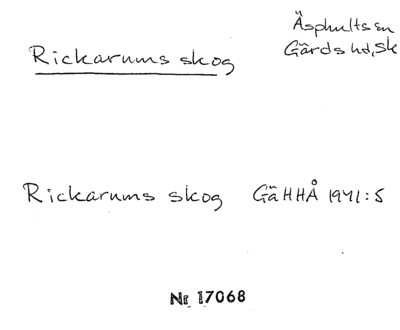 Äsphults sn
Gärds hd, Sk
Rickarums skog
Rickarums skog GäHHÅ 1941:5
Nr 17068